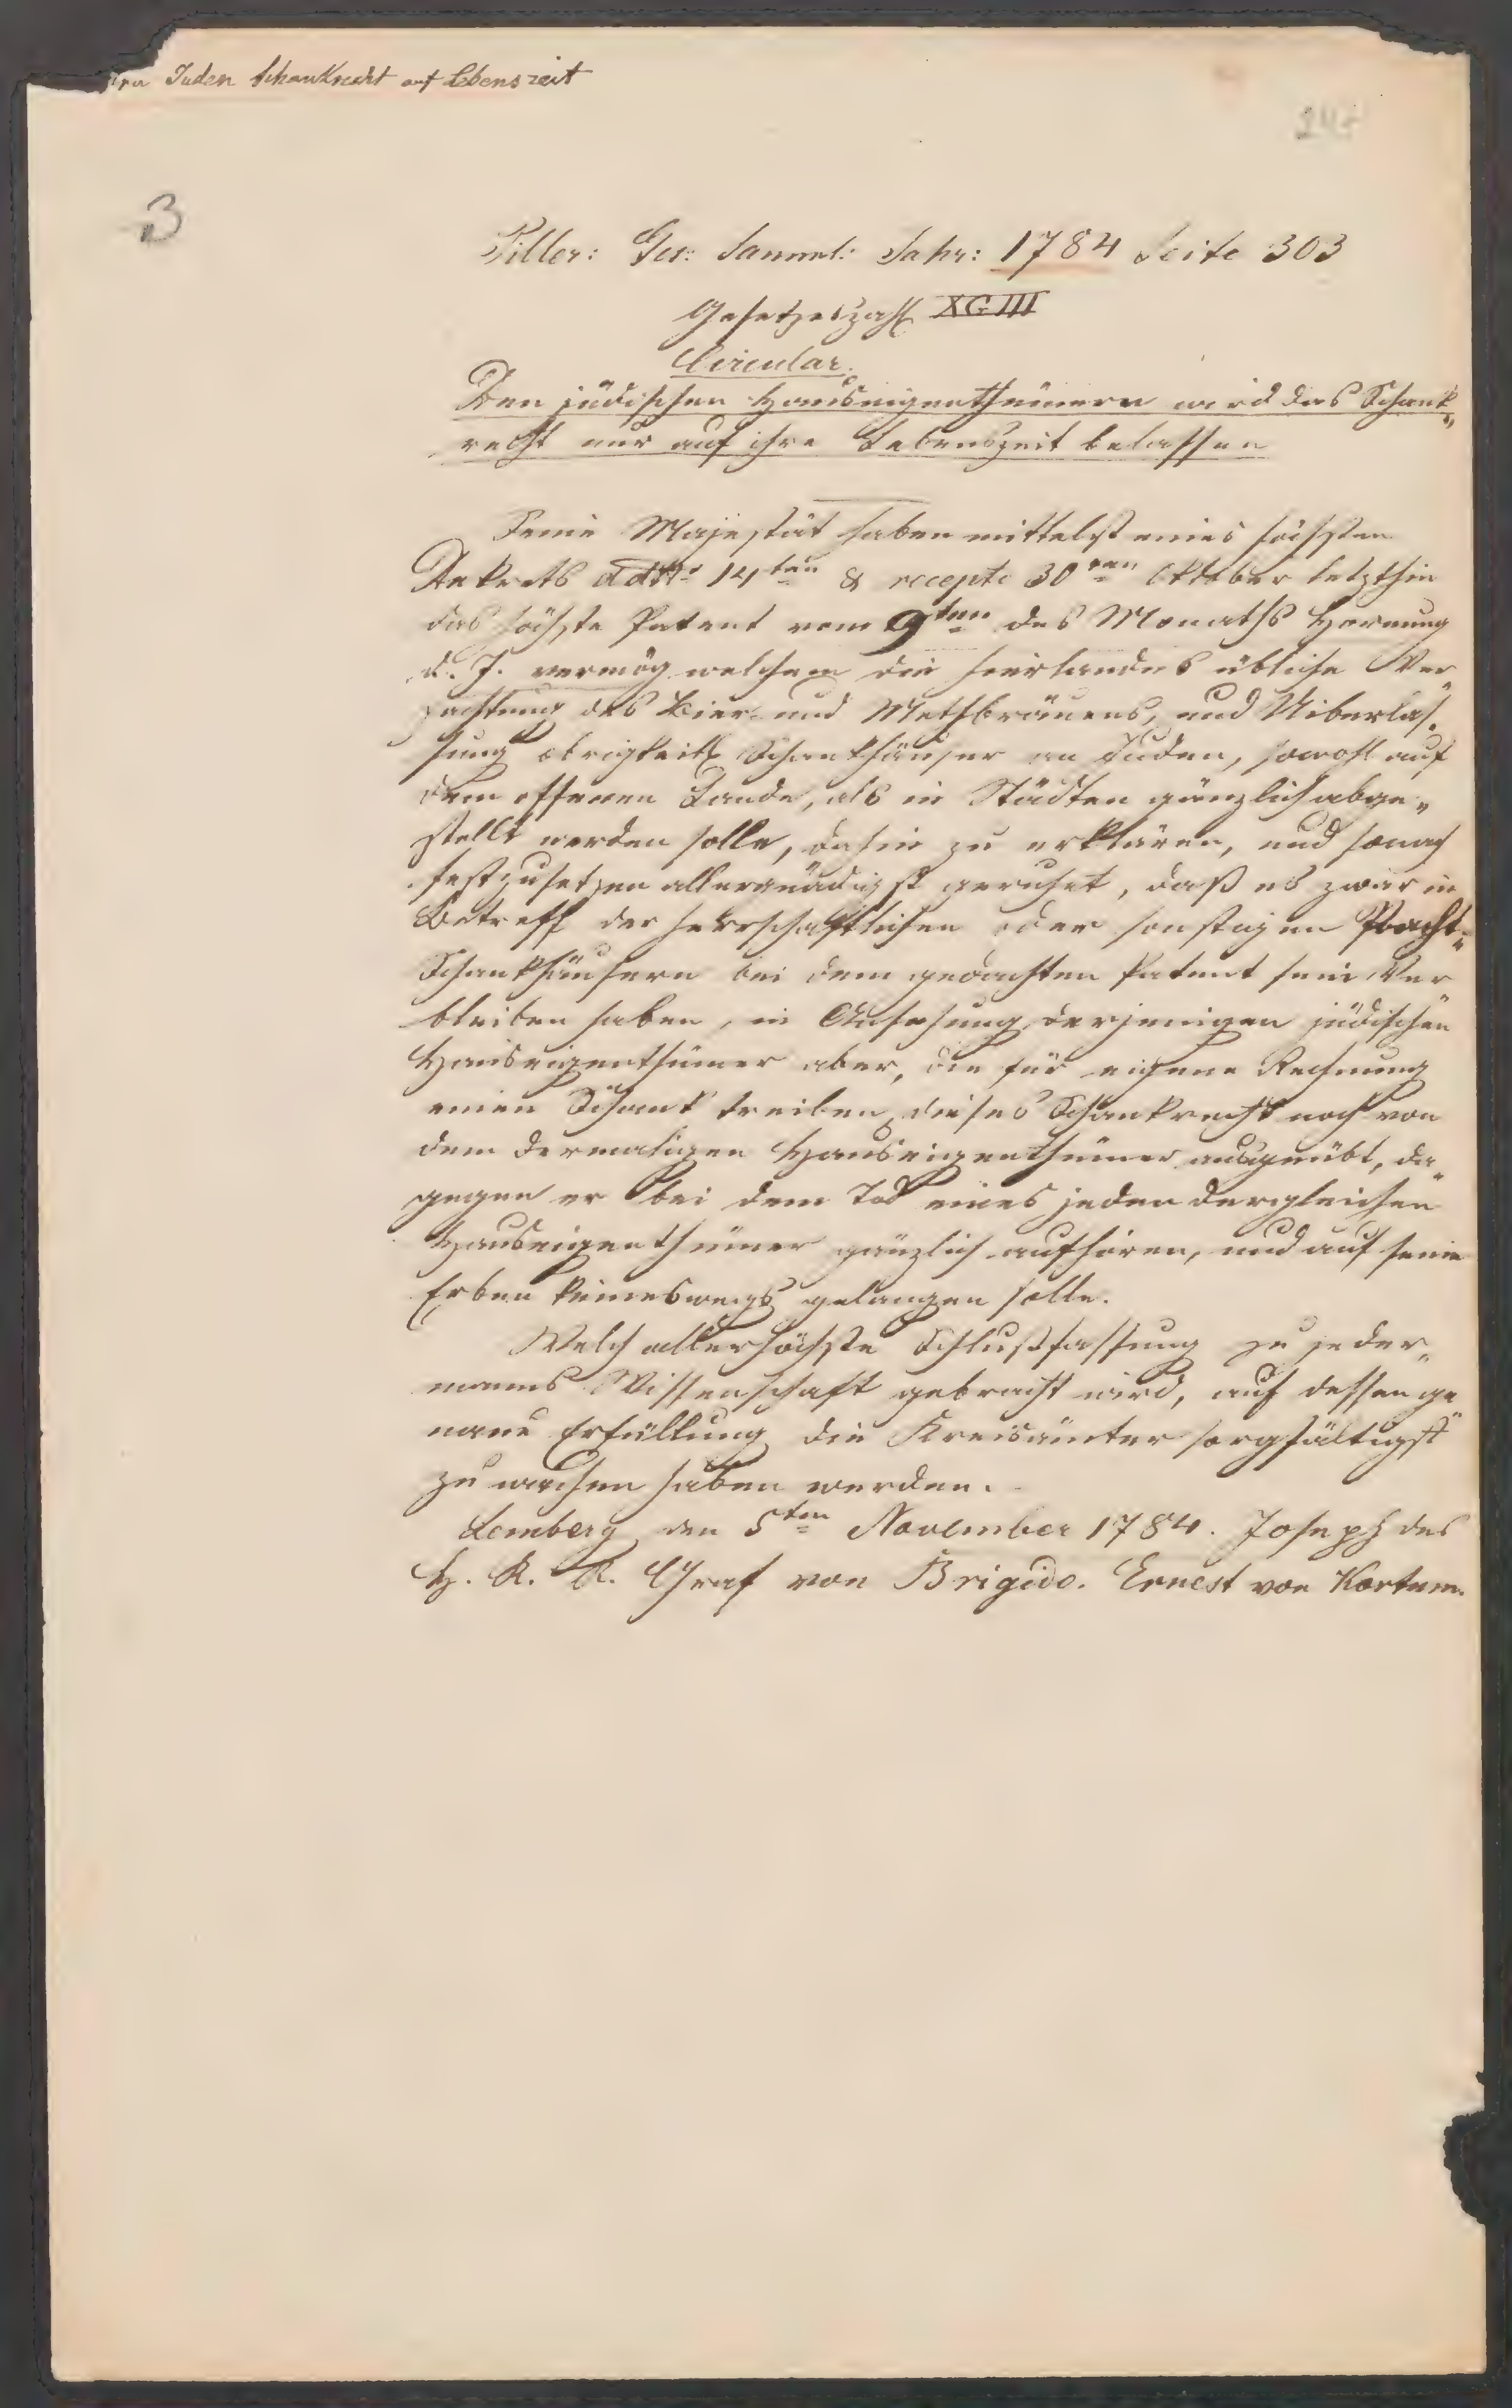 Juden Schankrecht auf Lebenszeit
3
Piller: Ges: Samml: Jahr: 1784 Seite 303
Gesetzeszahl XCIII
Circular.
Den jüdischen Hauseigenthümern wird das Schank„
recht nur auf ihre Lebenszeit belassen
Seine Majestät haben mittelst eines höchsten
Dekrets ddto 14ten & recepto 30ten Oktober letzthin
das höchste Patent vom 9ten des Monaths Hornung
d. J. vermög welchem die hierlandes übliche Ver„
pachtung des Bier- und Methbräuens, und Uiberlas„
sung obrigkeitl. Schankhäuser an Juden, sowohl auf
dem offenen Lande, als in Städten gänzlich abge„
stellt werden solle, dahin zu erklären, und sonach
festzusetzen allergnädigst geruhet, daß es zwar in
Betreff der herrschaftlichen oder sonstigen Pacht„
Schankhäusern bei dem gedachten Patent sein Ver„
bleiben haben, in Ansehung derjenigen jüdischen
Hauseigenthümer aber, die für eigene Rechnung
einen Schank treiben, dieses Schankrecht noch von
dem dermaligen Hauseigenthümer ausgeübt, da„
gegen er bei dem Tod eines jeden dergleichen
Hauseigenthümer gänzlich aufhören, und auf seine
Erben keineswegs gelangen solle.
Welch allerhöchste Schlußfassung zu jeder„
manns Wissenschaft gebracht wird, auf dessen ge„
naue Erfüllung die Kreisämter sorgfältigst
zu wachen haben werden.
Lemberg den 5ten November 1784. Joseph des
H. R. R. Graf von Brigido. Ernest von Kortum.